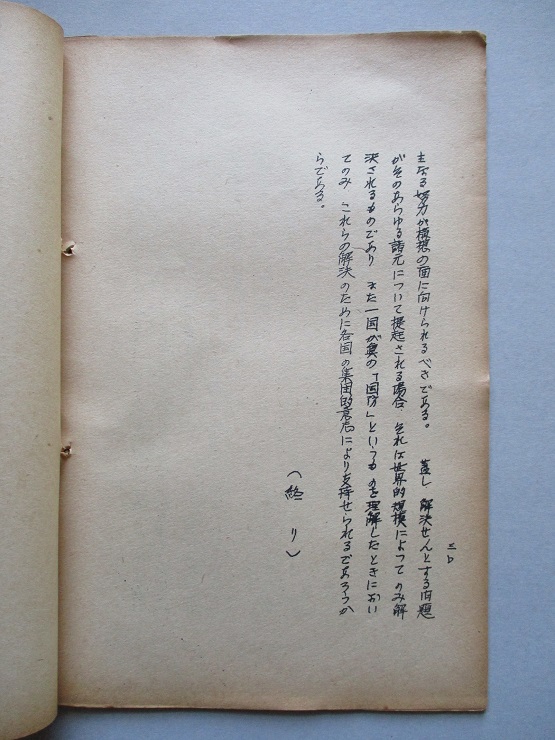 三〇
主なる努力が構想の面に向けられるべきである。　蓋し 解決せんとする问題
がそのあらゆる諸元について提起される場合、それは世界的規模によつてのみ解
決されるものであり また一国が真の「国防」というものを理解したときにおい
てのみ これらの解決のために各国の集団的意志により支持せられるであろうか
らである。
（終り）